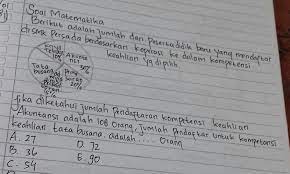 Soal Matematika
Berikut adalah jumlah dari peserta didik baru yang mendaftar
di SMK Persada berdasarkan kopetasi ke dalam kompetensi
keahlian yg dipilih
Tata
busana
20%
Jika diketahui jumlah pendaftaran kompetensi keahlian
Akuntansi adalah 108 orang, jumlah pendaftar untuk kompetensi
keahlian tata busana adalah .... orang
A. 27 D. 72
B. 36 E. 90
C. 54